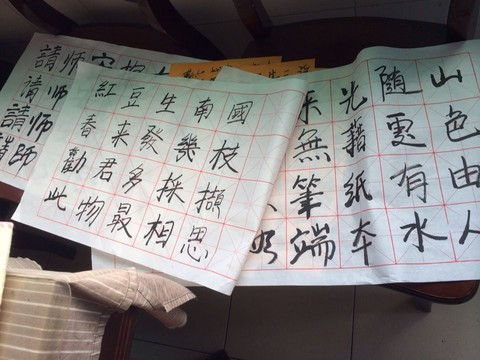 請师
请师
請师
師
紅豆生南國
春來發幾枝
勸君多採擷
此物最相思
山色由人
隨有水
光籍紙本
無筆端